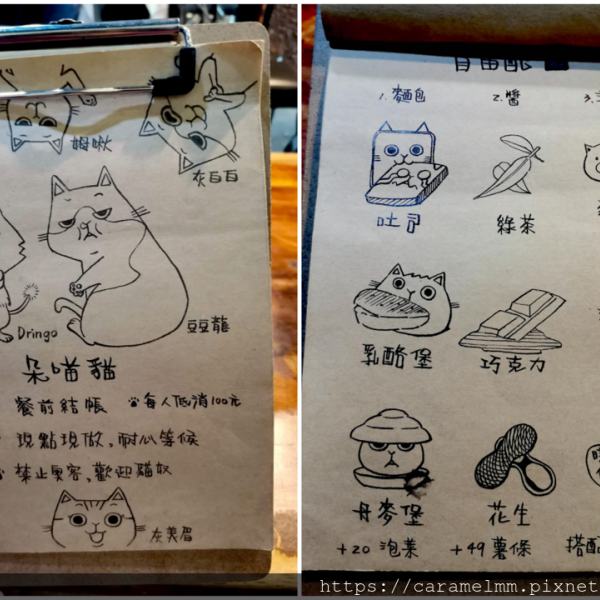 姆啾
灰白白
Dringo
豆豆龍
朵喵貓
餐前結帳
每人低消100元
現點現做,耐心等候
禁止奧客,歡迎貓奴
灰美眉
自由配
1. 麵包
2. 醬
3.
吐司
綠茶
乳酪堡
巧克力
丹麥堡
花生
+20 泡菜
+49 薯條
搭配
https://caramelmm.pixnet